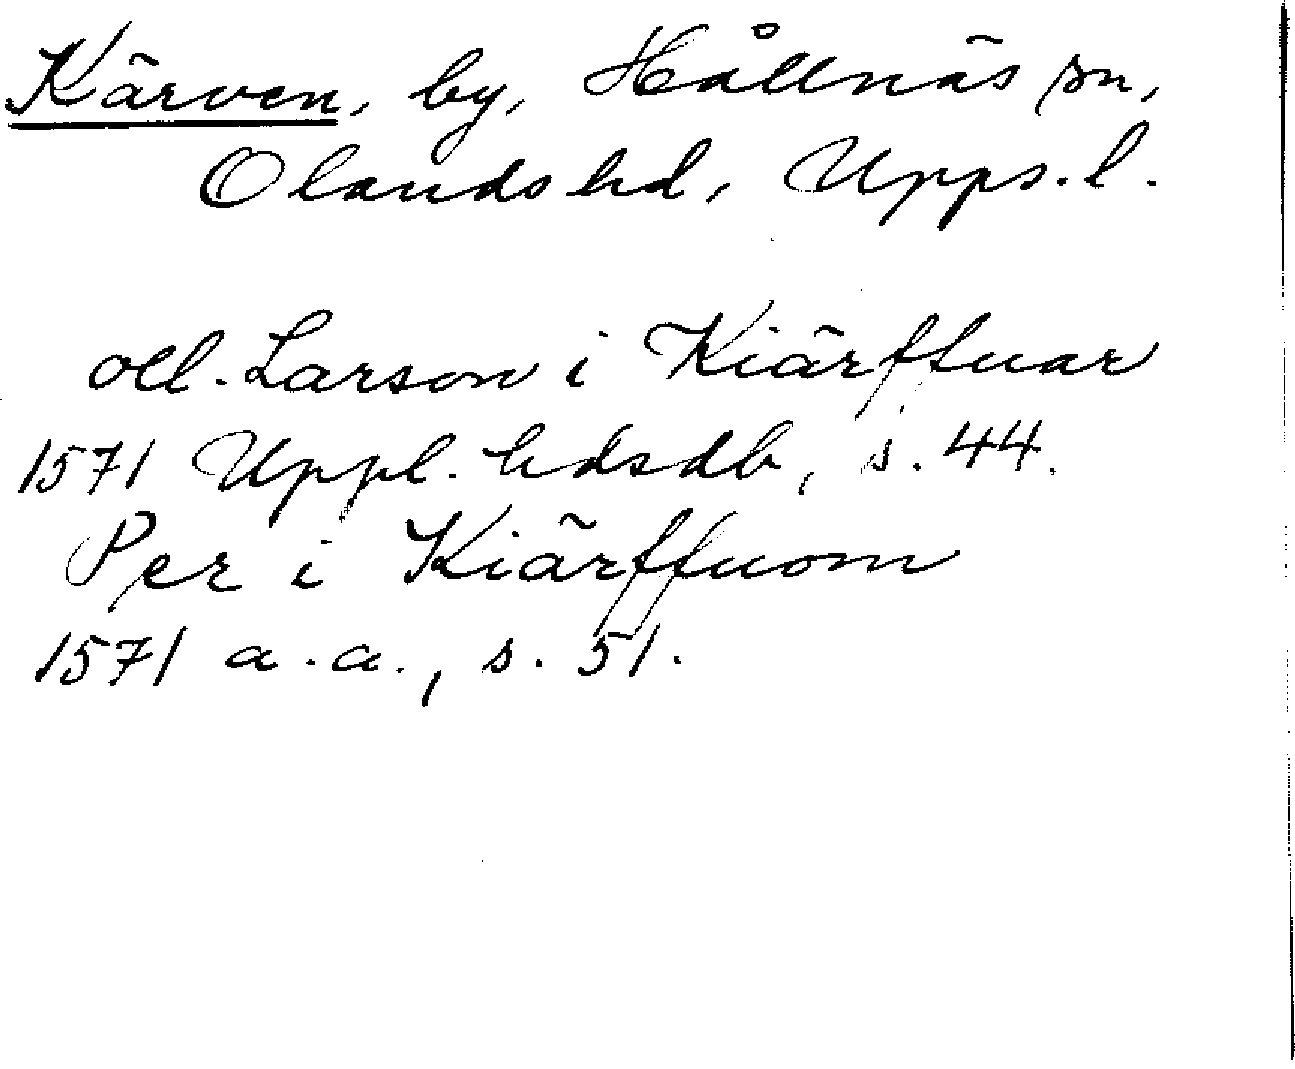 Kärven, by, Hållnäs sn,
Olands hd, Upps. l.
oll. Larson i Kiärffuar
1571 Uppl. hdsdb, s. 44.
Per i Kiärffuom
1571 a. a., s. 51.